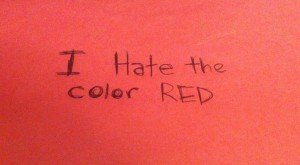 I Hate the
color RED